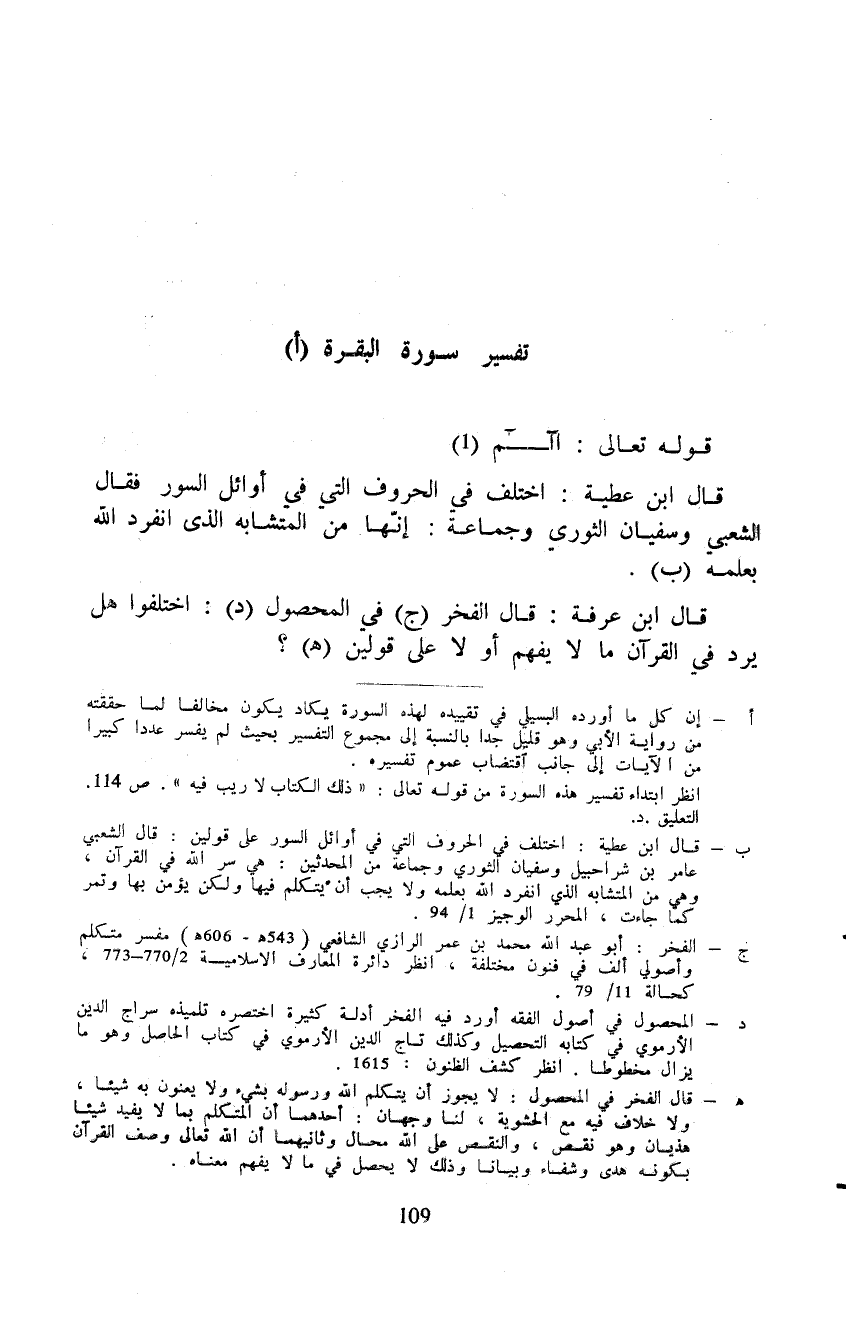 تفسير سورة البقرة (أ)
قوله تعالى : آلٓــمٓ (1)
قال ابن عطية : اختلف في الحروف التي في أوائل السور فقال
الشعبي وسفيان الثوري وجماعة : إنّها من المتشابه الذى انفرد الله
بعلمه (ب) .
قال ابن عرفة : قال الفخر (ج) في المحصول (د) : اختلفوا هل
يرد في القرآن ما لا يفهم أو لا على قولين (ه) ؟
أ – إن كل ما أورده البسيلي في تقييده لهذه السورة يكاد يكون مخالفا لما حققته
من رواية الأبي وهو قليل جدا بالنسبة إلى مجموع التفسير بحيث لم يفسر عددا كبيرا
من الآيات إلى جانب آقتضاب عموم تفسيره .
انظر ابتداء تفسير هذه السورة من قوله تعالى : « ذلك الكتاب لا ريب فيه » . ص 114.
التعليق .د.
ب – قال ابن عطية : اختلف في الحروف التي في أوائل السور على قولين : قال الشعبي
عامر بن شراحبيل وسفيان الثوري وجماعة من المحدثين : هي سر الله في القرآن ،
وهي من المتشابه الذي انفرد الله بعلمه ولا يجب أن يتكلم فيها ولكن يؤمن بها وتمر
كما جاءت ، المحرر الوجيز 1/ 94 .
ج – الفخر : أبو عبد الله محمد بن عمر الرازي الشافعي ( 543ه - 606ه ) مفسر متكلم
وأصولي ألف في فنون مختلفة ، انظر دائرة المعارف الاسلامية 770/2–773 ،
كحالة 11/ 79 .
د – المحصول في أصول الفقه أورد فيه الفخر أدلة كثيرة اختصره تلميذه سراج الدين
الأرموي في كتابه التحصيل وكذلك تاج الدين الأرموي في كتاب الحاصل وهو ما
يزال مخطوطا . انظر كشف الظنون : 1615 .
ه – قال الفخر في المحصول : لا يجوز أن يتكلم الله ورسوله بشيء ولا يعنون به شيئا ،
ولا خلاف فيه مع الحشوية ، لنا وجهان : أحدهما أن المتكلم بما لا يفيد شيئا
هذيان وهو نقص ، والنقص على الله محال وثانيهما أن الله تعالى وصف القرآن
بكونه هدى وشفاء وبيانا وذلك لا يحصل في ما لا يفهم معناه .
109